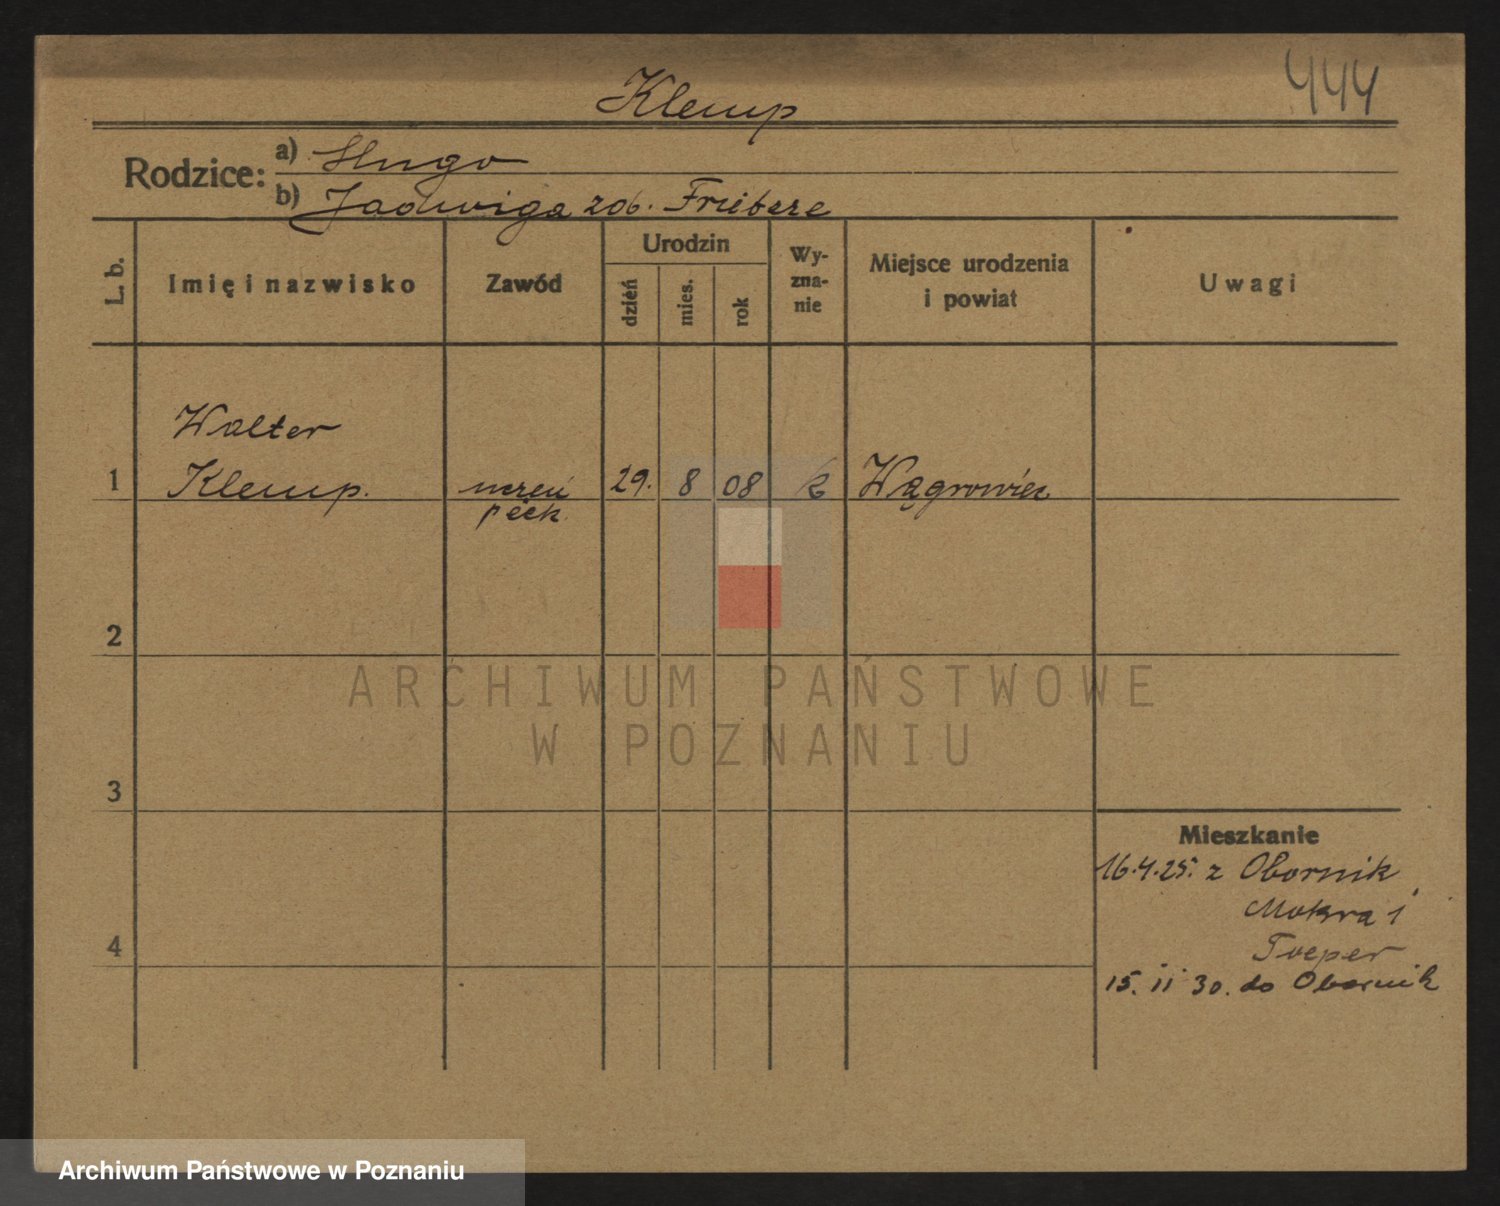 444
Klemp
Rodzice: a) Hugo
b) Jadwiga zob. Friebeze
L. b.
Imię i nazwisko
Zawód
Urodzin
dzień
mies.
rok
Wy-
zna-
nie
Miejsce urodzenia
i powiat
Uwagi
Walter
1 Klemp. uczeń 29. 8 08 k Wągrowiec
piek.
2
3
4
Mieszkanie
16.4.25. z Obornik
Mokra 1
Toeper
15. 11 30. do Obornik
ARCHIWUM PAŃSTWOWE
W POZNANIU
Archiwum Państwowe w Poznaniu